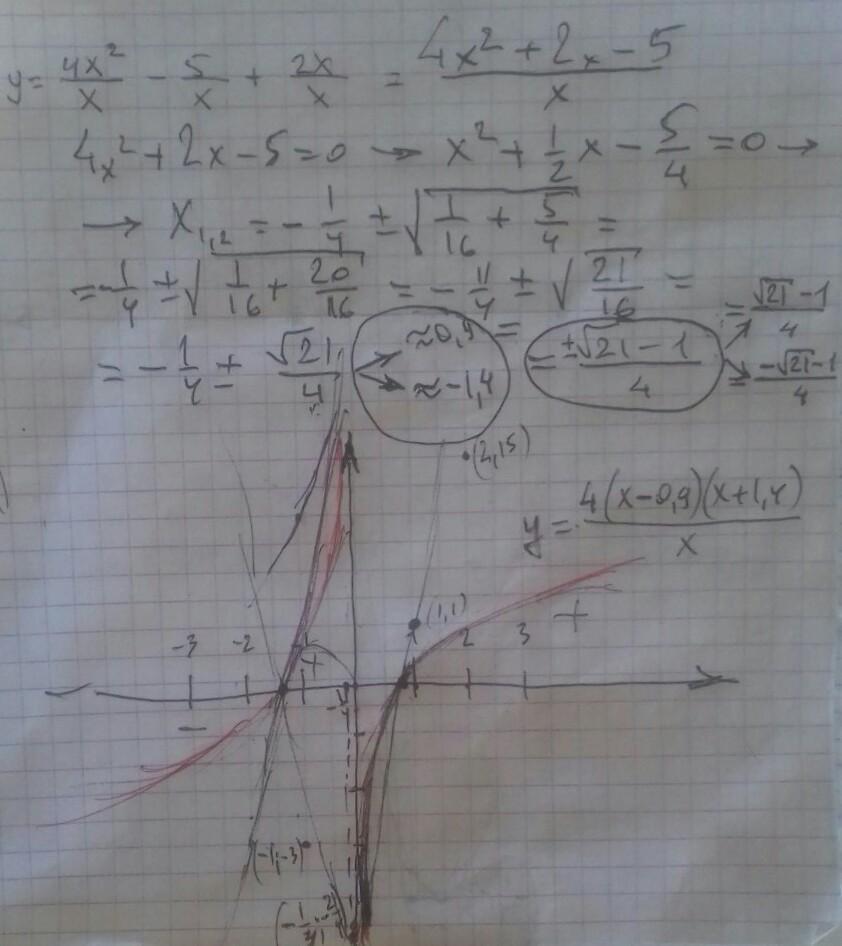 y = 4x²/x - 5/x + 2x/x = 4x² + 2x - 5/x
4x² + 2x - 5 = 0 → x² + 1/2 x - 5/4 = 0 →
→ x₁,₂ = - 1/4 ± √1/16 + 5/4 =
= - 1/4 ± √1/16 + 20/16 = - 1/4 ± √21/16 =
= - 1/4 ± √21/4 ≈ 0,9 ≈ -1,4 = = ±√21 - 1/4 = √21 - 1/4 = -√21 - 1/4
(2,15)
y = 4(x-0,9)(x+1,4)/x
(1,1)
-3 -2 + 1 2 3 +
-
(-1,-3)